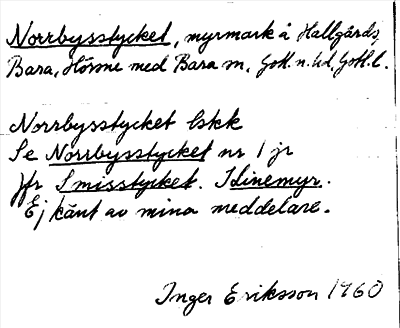 Norrbysstycket, myrmark å Hallgårds,
Bara, Hörsne med Bara sn, Gotl. n. hd, Gotl. l.
Norrbysstycket lskk
Se Norrbysstycket nr 1 jr
Jfr Smisstycket. I Linemyr.
Ej känt av mina meddelare.
Inger Eriksson 1960